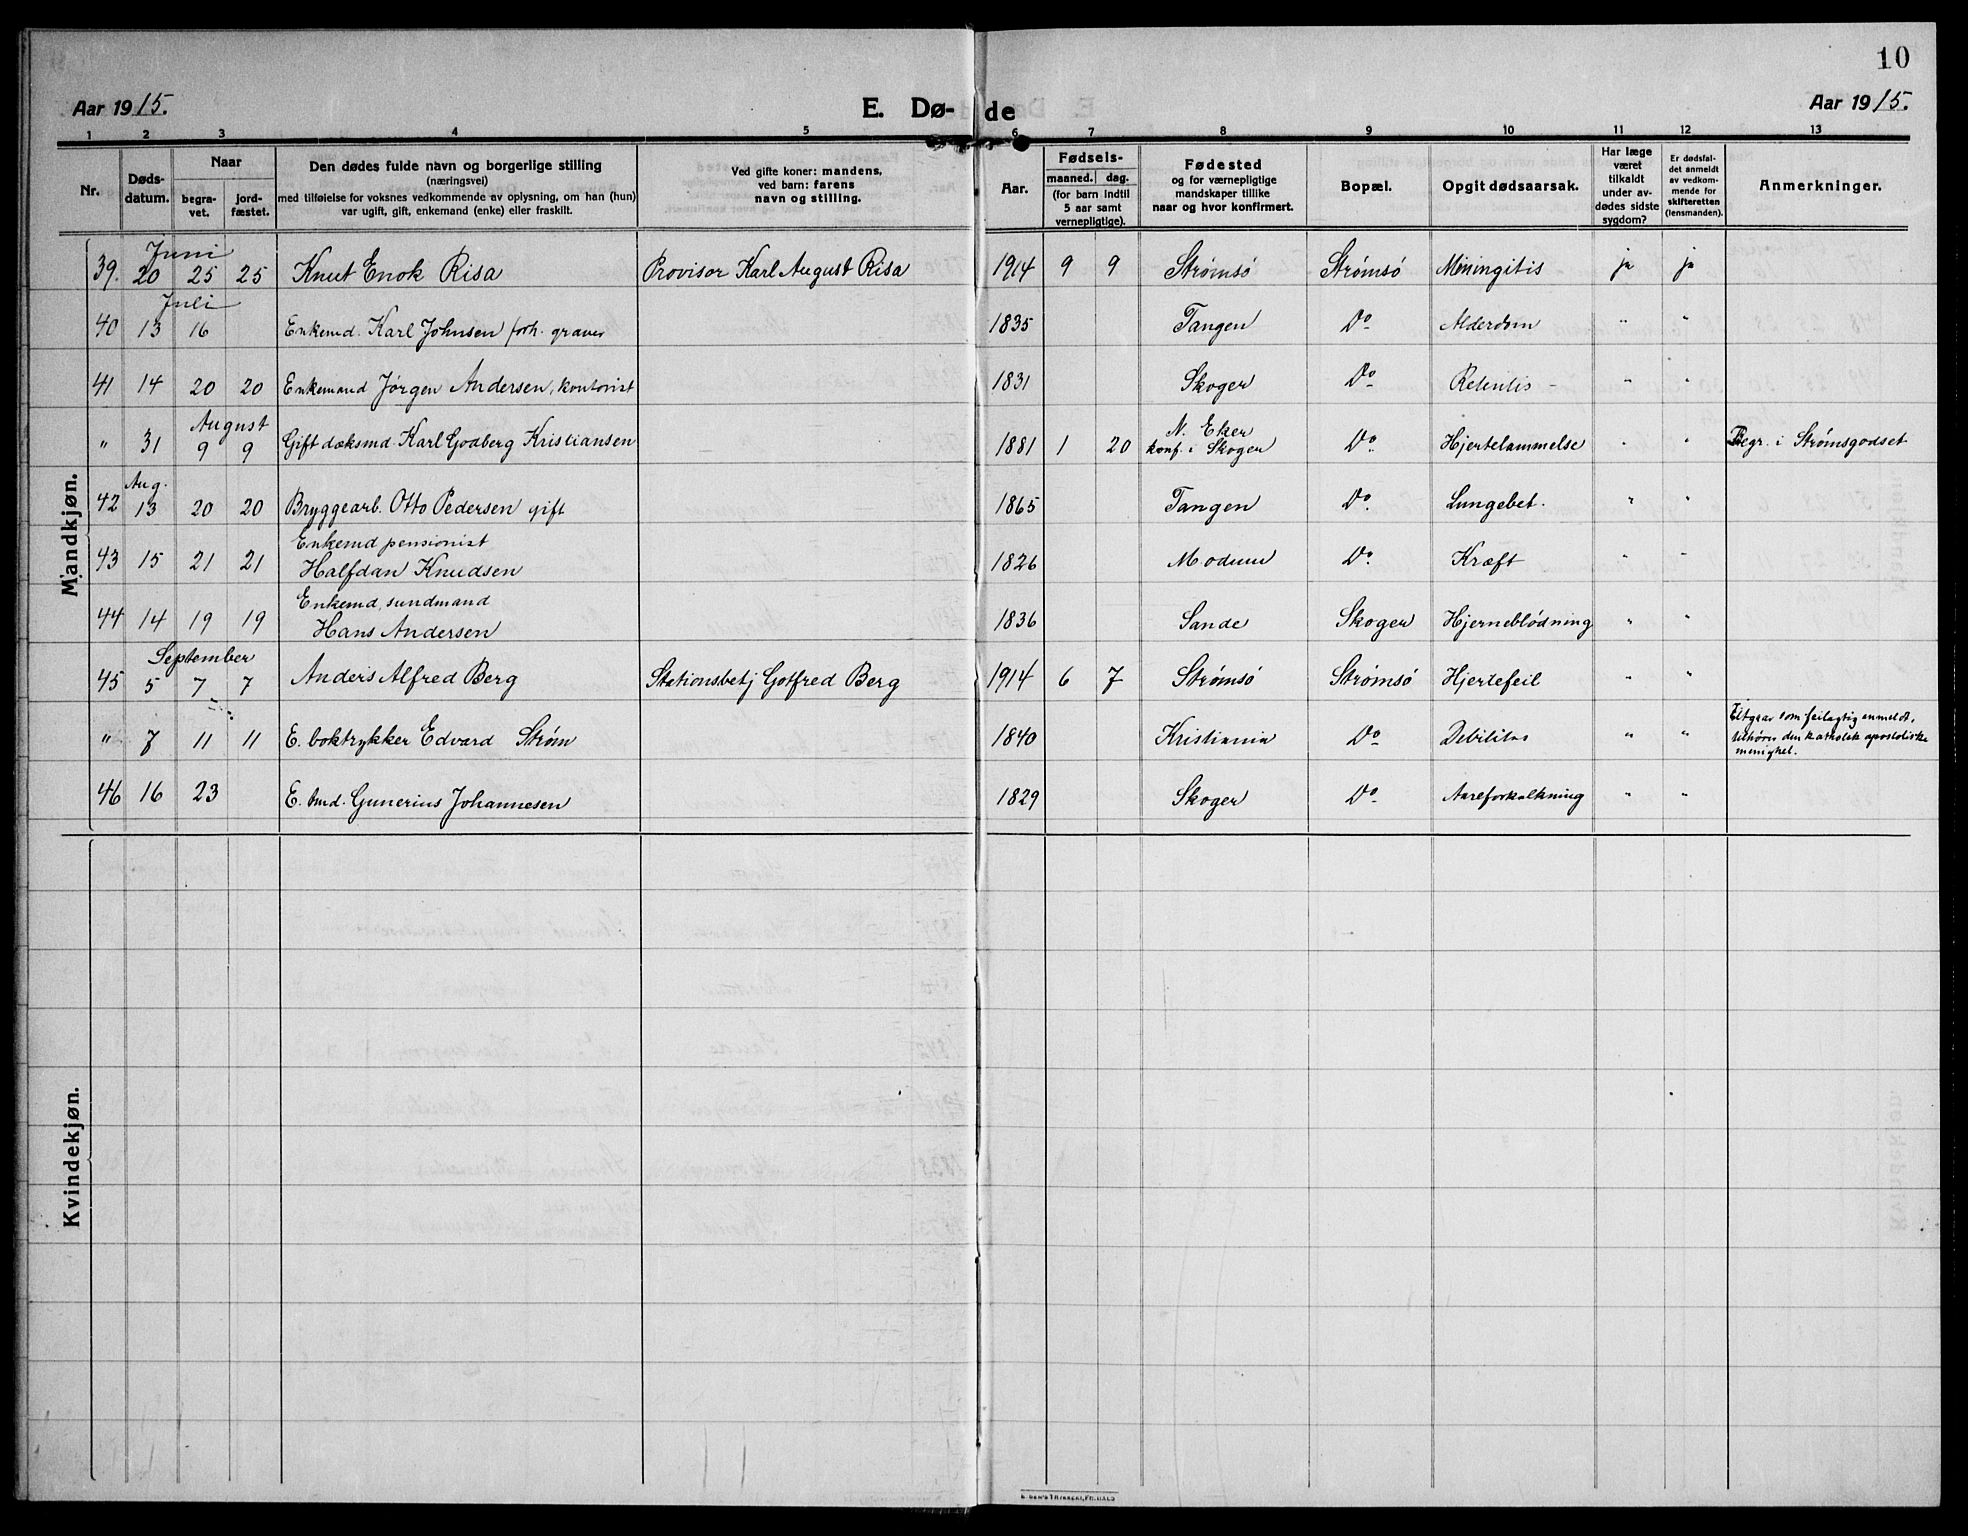 10
Aar 1915. E. Dø- de Aar 1915.
1 2 3 4 5 6 7 8 9 10 11 12 13
Nr. Døds-datum. Naar begra-vet. jord-fæstet. Den dødes fulde navn og borgerlige stilling (næringsvei) med tilføielse for voksnes vedkommende av oplysning, om han (hun) var ugift, gift, enkemand (enke) eller fraskilt. Ved gifte koner: mandens, ved barn: farens navn og stilling. Aar. Fødsels- maaned. dag. (for barn indtil 5 aar samt vernepligtige). Fødested og for værnepligtige mandskaper tillike naar og hvor konfirmert. Bopæl. Opgit dødsaarsak. Har læge været tilkaldt under av-dødes sidste sygdom? Er dødsfal-det anmeldt av vedkom-mende for skifteretten (lensmanden). Anmerkninger.
Mandkjøn.
Juni
39. 20 25 25 Knut Enok Risa Provisor Karl August Risa 1914 9 9 Strømsø Strømsø Miningitis ja ja
Juli
40 13 16 Enkemd. Karl Johnsen forh. graver 1835 Tangen Do Alderdom " "
41 14 20 20 Enkemand Jørgen Andersen, kontorist 1831 Skoger Do Retentis - " "
August
" 31 9 9 Gift dæksmd. Karl Godberg Kristiansen 1881 1 20 N. Eker konf. i Skoger Do Hjertelammelse " " Begr. i Strømsgodset
Aug.
42 13 20 20 Bryggearb. Otto Pedersen gift 1865 Tangen Do. Lungebet. " "
Enkemd pensionist
43 15 21 21 Halfdan Knudsen 1826 Modum Do Kræft " "
Enkemd, sundmand
44 14 19 19 Hans Andersen 1836 Sande Skoger Hjerneblødning " "
September
45 5 7 7 Anders Alfred Berg Stationsbetj Gotfred Berg 1914 6 7 Strømsø Strømsø Hjertefeil " "
" 7 11 11 E. boktrykker Edvard Strøm 1840 Kristiania Do Debilitas " " Utgaar som feilagtig anmeldt, tilhører den katholsk apostoliske menighet.
46 16 23 E. Gunerius Johannesen 1829 Skoger Do Aareforkalkning " "
Kvindekjøn.